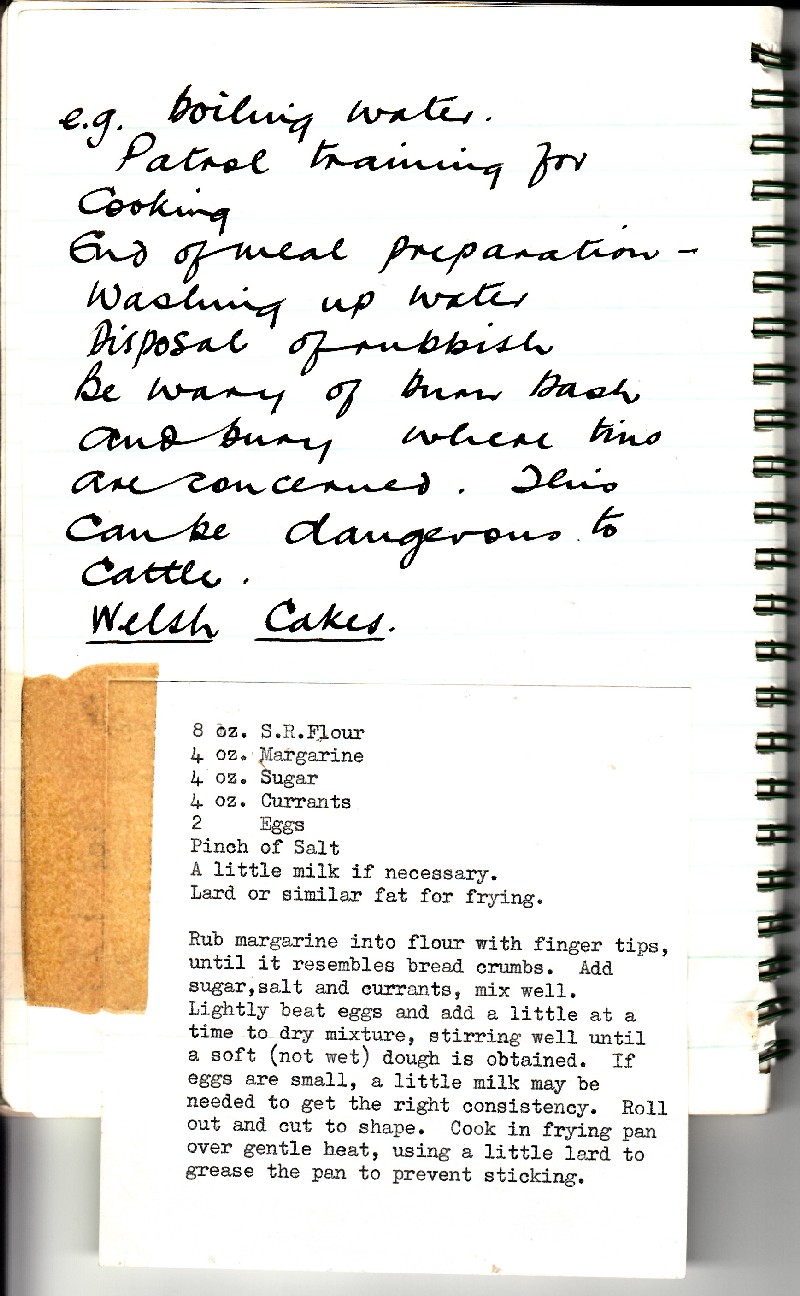 e.g. boiling water.
Patrol training for
Cooking
End of meal preparation -
Washing up water
Disposal of rubbish
Be wary of burn bash
and bury where tins
are concerned. This
can be dangerous to
Cattle.
Welsh Cakes.
8 oz. S.R.Flour
4 oz. Margarine
4 oz. Sugar
4 oz. Currants
2 Eggs
Pinch of Salt
A little milk if necessary.
Lard or similar fat for frying.
Rub margarine into flour with finger tips,
until it resembles bread crumbs. Add
sugar,salt and currants, mix well.
Lightly beat eggs and add a little at a
time to dry mixture, stirring well until
a soft (not wet) dough is obtained. If
eggs are small, a little milk may be
needed to get the right consistency. Roll
out and cut to shape. Cook in frying pan
over gentle heat, using a little lard to
grease the pan to prevent sticking.